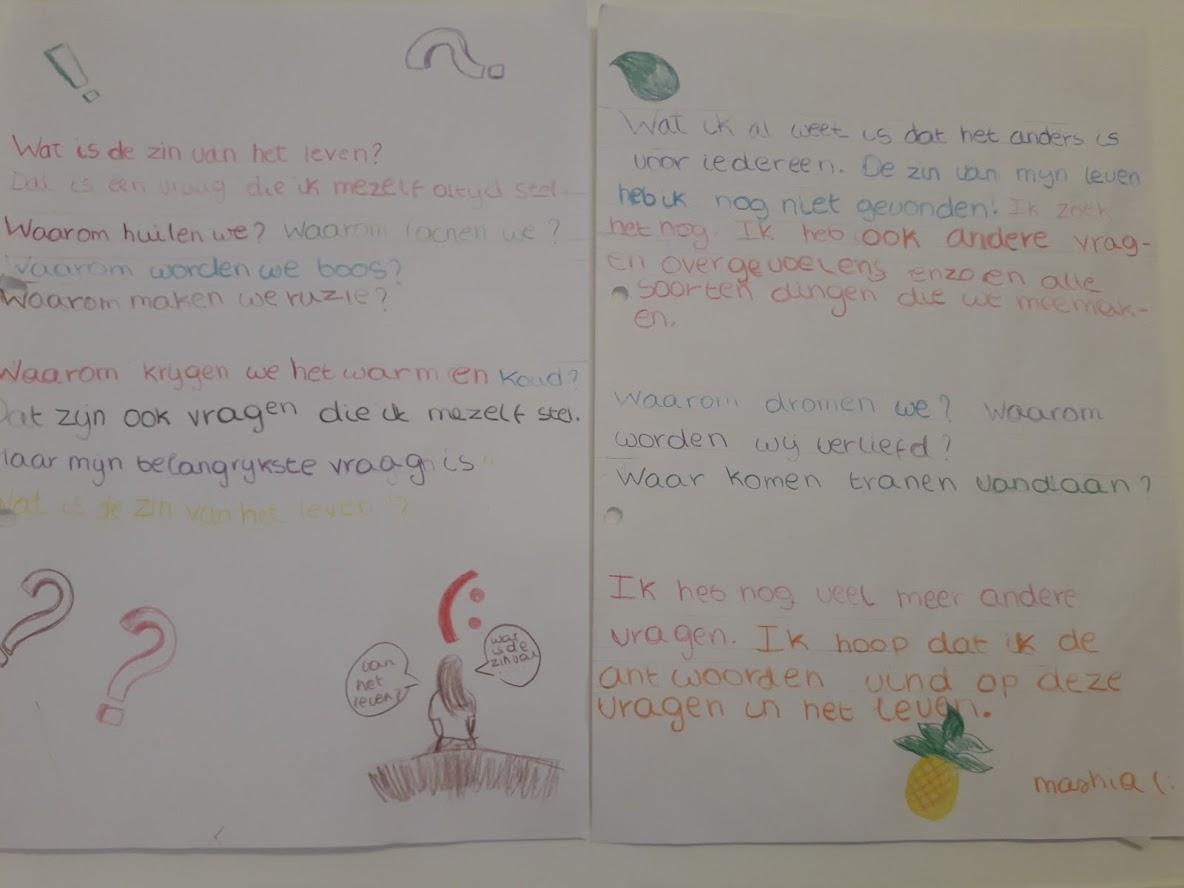 Wat is de zin van het leven?
Dat is een vraag die ik mezelf altyd stel.
Waarom huilen we? Waarom lachen we?
Waarom worden we boos?
Waarom maken we ruzie?
Waarom krygen we het warm en koud?
Dat zijn ook vragen die ik mezelf stel.
Maar myn belangrykste vraag is
Wat is de zin van het leven?
wat
is de
zin van
van
het
leven?
Wat ik al weet is dat het anders is
voor iedereen. De zin van myn leven
heb ik nog niet gevonden. Ik zoek
het nog. Ik heb ook andere vrag-
en over gevoelens enzo en alle
soorten dingen die we meemak-
en.
Waarom dromen we? Waarom
worden wij verliefd?
Waar komen tranen vandaan?
Ik heb nog veel meer andere
vragen. Ik hoop dat ik de
antwoorden vind op deze
vragen in het leven.
mashia (: